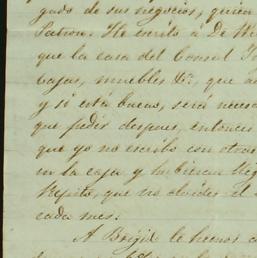 gado de sus negocios, quien
Patron. He escrito á De
que la casa del Consul
Cajas, muebles &c; que
y si está bueno, será neces
que pedir despues, entonces
que yo no escribo con otras
en la caja y
Repito, que no olvides el
cada mes.
A Brigid le hemos